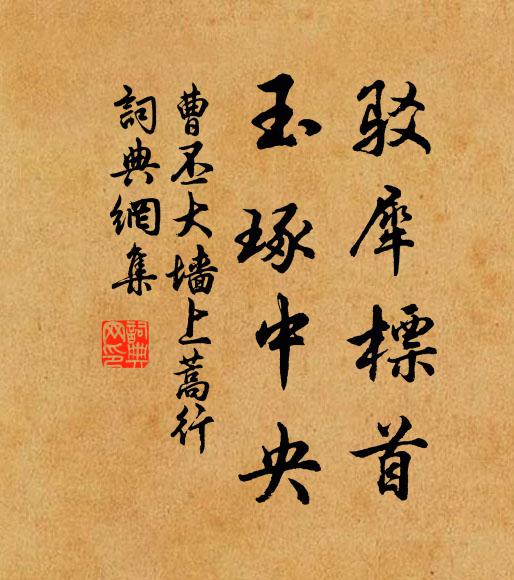 駮犀標首
玉琢中央
曹丕大墙上蒿行
詞典網集
詞典
网印